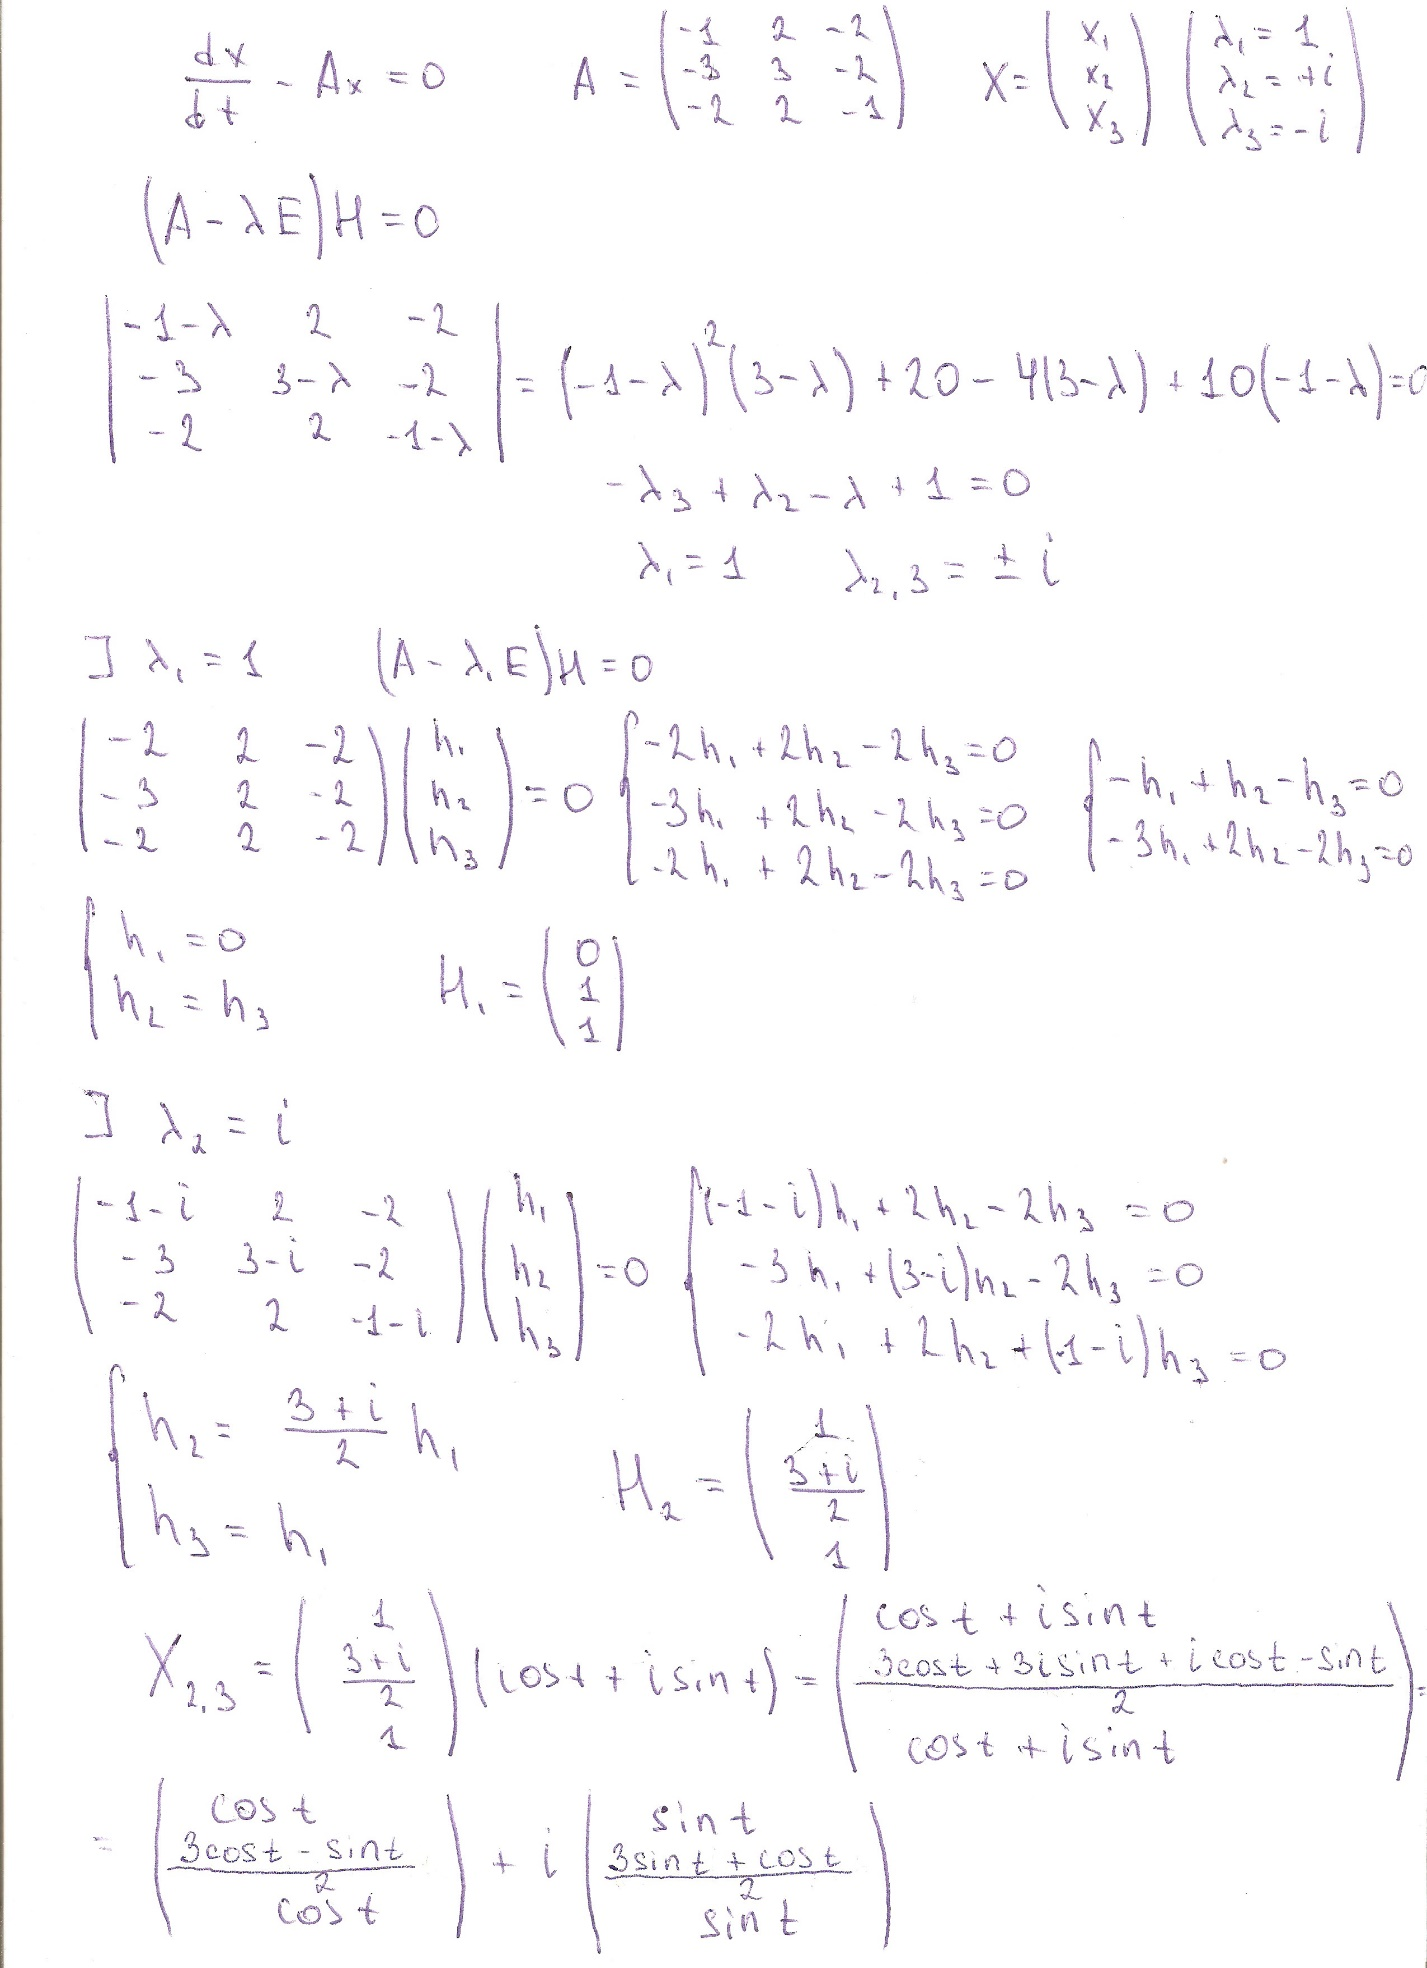 dx/dt - Ax = 0   A = (-1 2 -2; -3 3 -2; -2 2 -1)   X = (x₁; x₂; x₃)   (λ₁ = 1; λ₂ = +i; λ₃ = -i)
(A - λE)H = 0
|-1-λ 2 -2; -3 3-λ -2; -2 2 -1-λ| = (-1-λ)²(3-λ) + 20 - 4(3-λ) + 10(-1-λ) = 0
-λ₃ + λ₂ - λ + 1 = 0
λ₁ = 1   λ₂,₃ = ± i
] λ₁ = 1   (A - λ₁E)H = 0
(-2 2 -2; -3 2 -2; -2 2 -2)(h₁; h₂; h₃) = 0   {-2h₁ + 2h₂ - 2h₃ = 0; -3h₁ + 2h₂ - 2h₃ = 0; -2h₁ + 2h₂ - 2h₃ = 0   {-h₁ + h₂ - h₃ = 0; -3h₁ + 2h₂ - 2h₃ = 0
{h₁ = 0; h₂ = h₃   H₁ = (0; 1; 1)
] λ₂ = i
(-1-i 2 -2; -3 3-i -2; -2 2 -1-i)(h₁; h₂; h₃) = 0   {(-1-i)h₁ + 2h₂ - 2h₃ = 0; -3h₁ + (3-i)h₂ - 2h₃ = 0; -2h₁ + 2h₂ + (-1-i)h₃ = 0
{h₂ = (3+i)/2 h₁; h₃ = h₁   H₂ = (1; (3+i)/2; 1)
X₂,₃ = (1; (3+i)/2; 1)(cost + i sint) = (cost + i sint; (3cost + 3i sint + i cost - sint)/2; cost + i sint) =
= (cost; (3cost - sint)/2; cost) + i (sint; (3sint + cost)/2; sint)